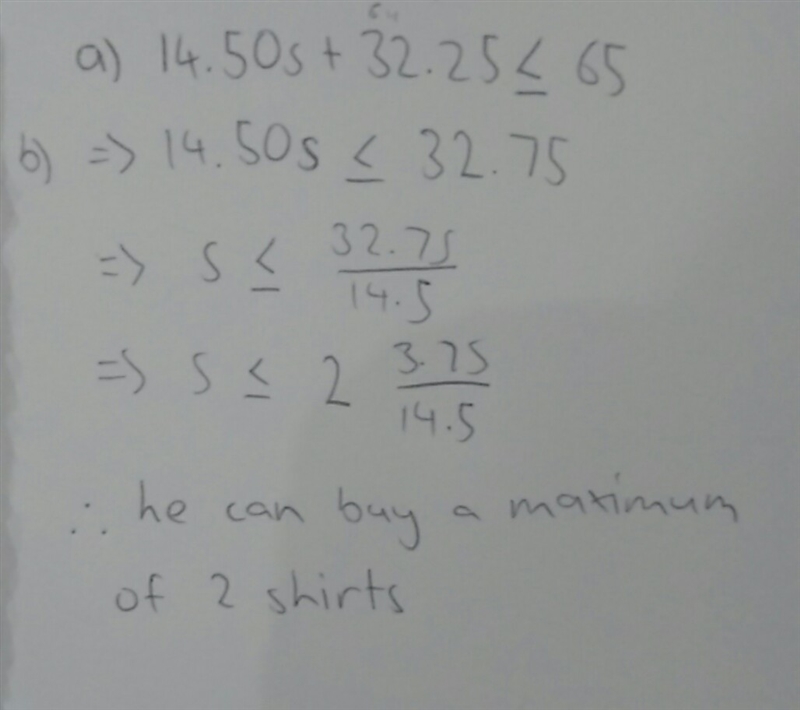 a) 14.50s + 32.25 ≤ 65
b) => 14.50s ≤ 32.75
=> s ≤ 32.75/14.5
=> s ≤ 2 3.75/14.5
∴ he can buy a maximum
of 2 shirts